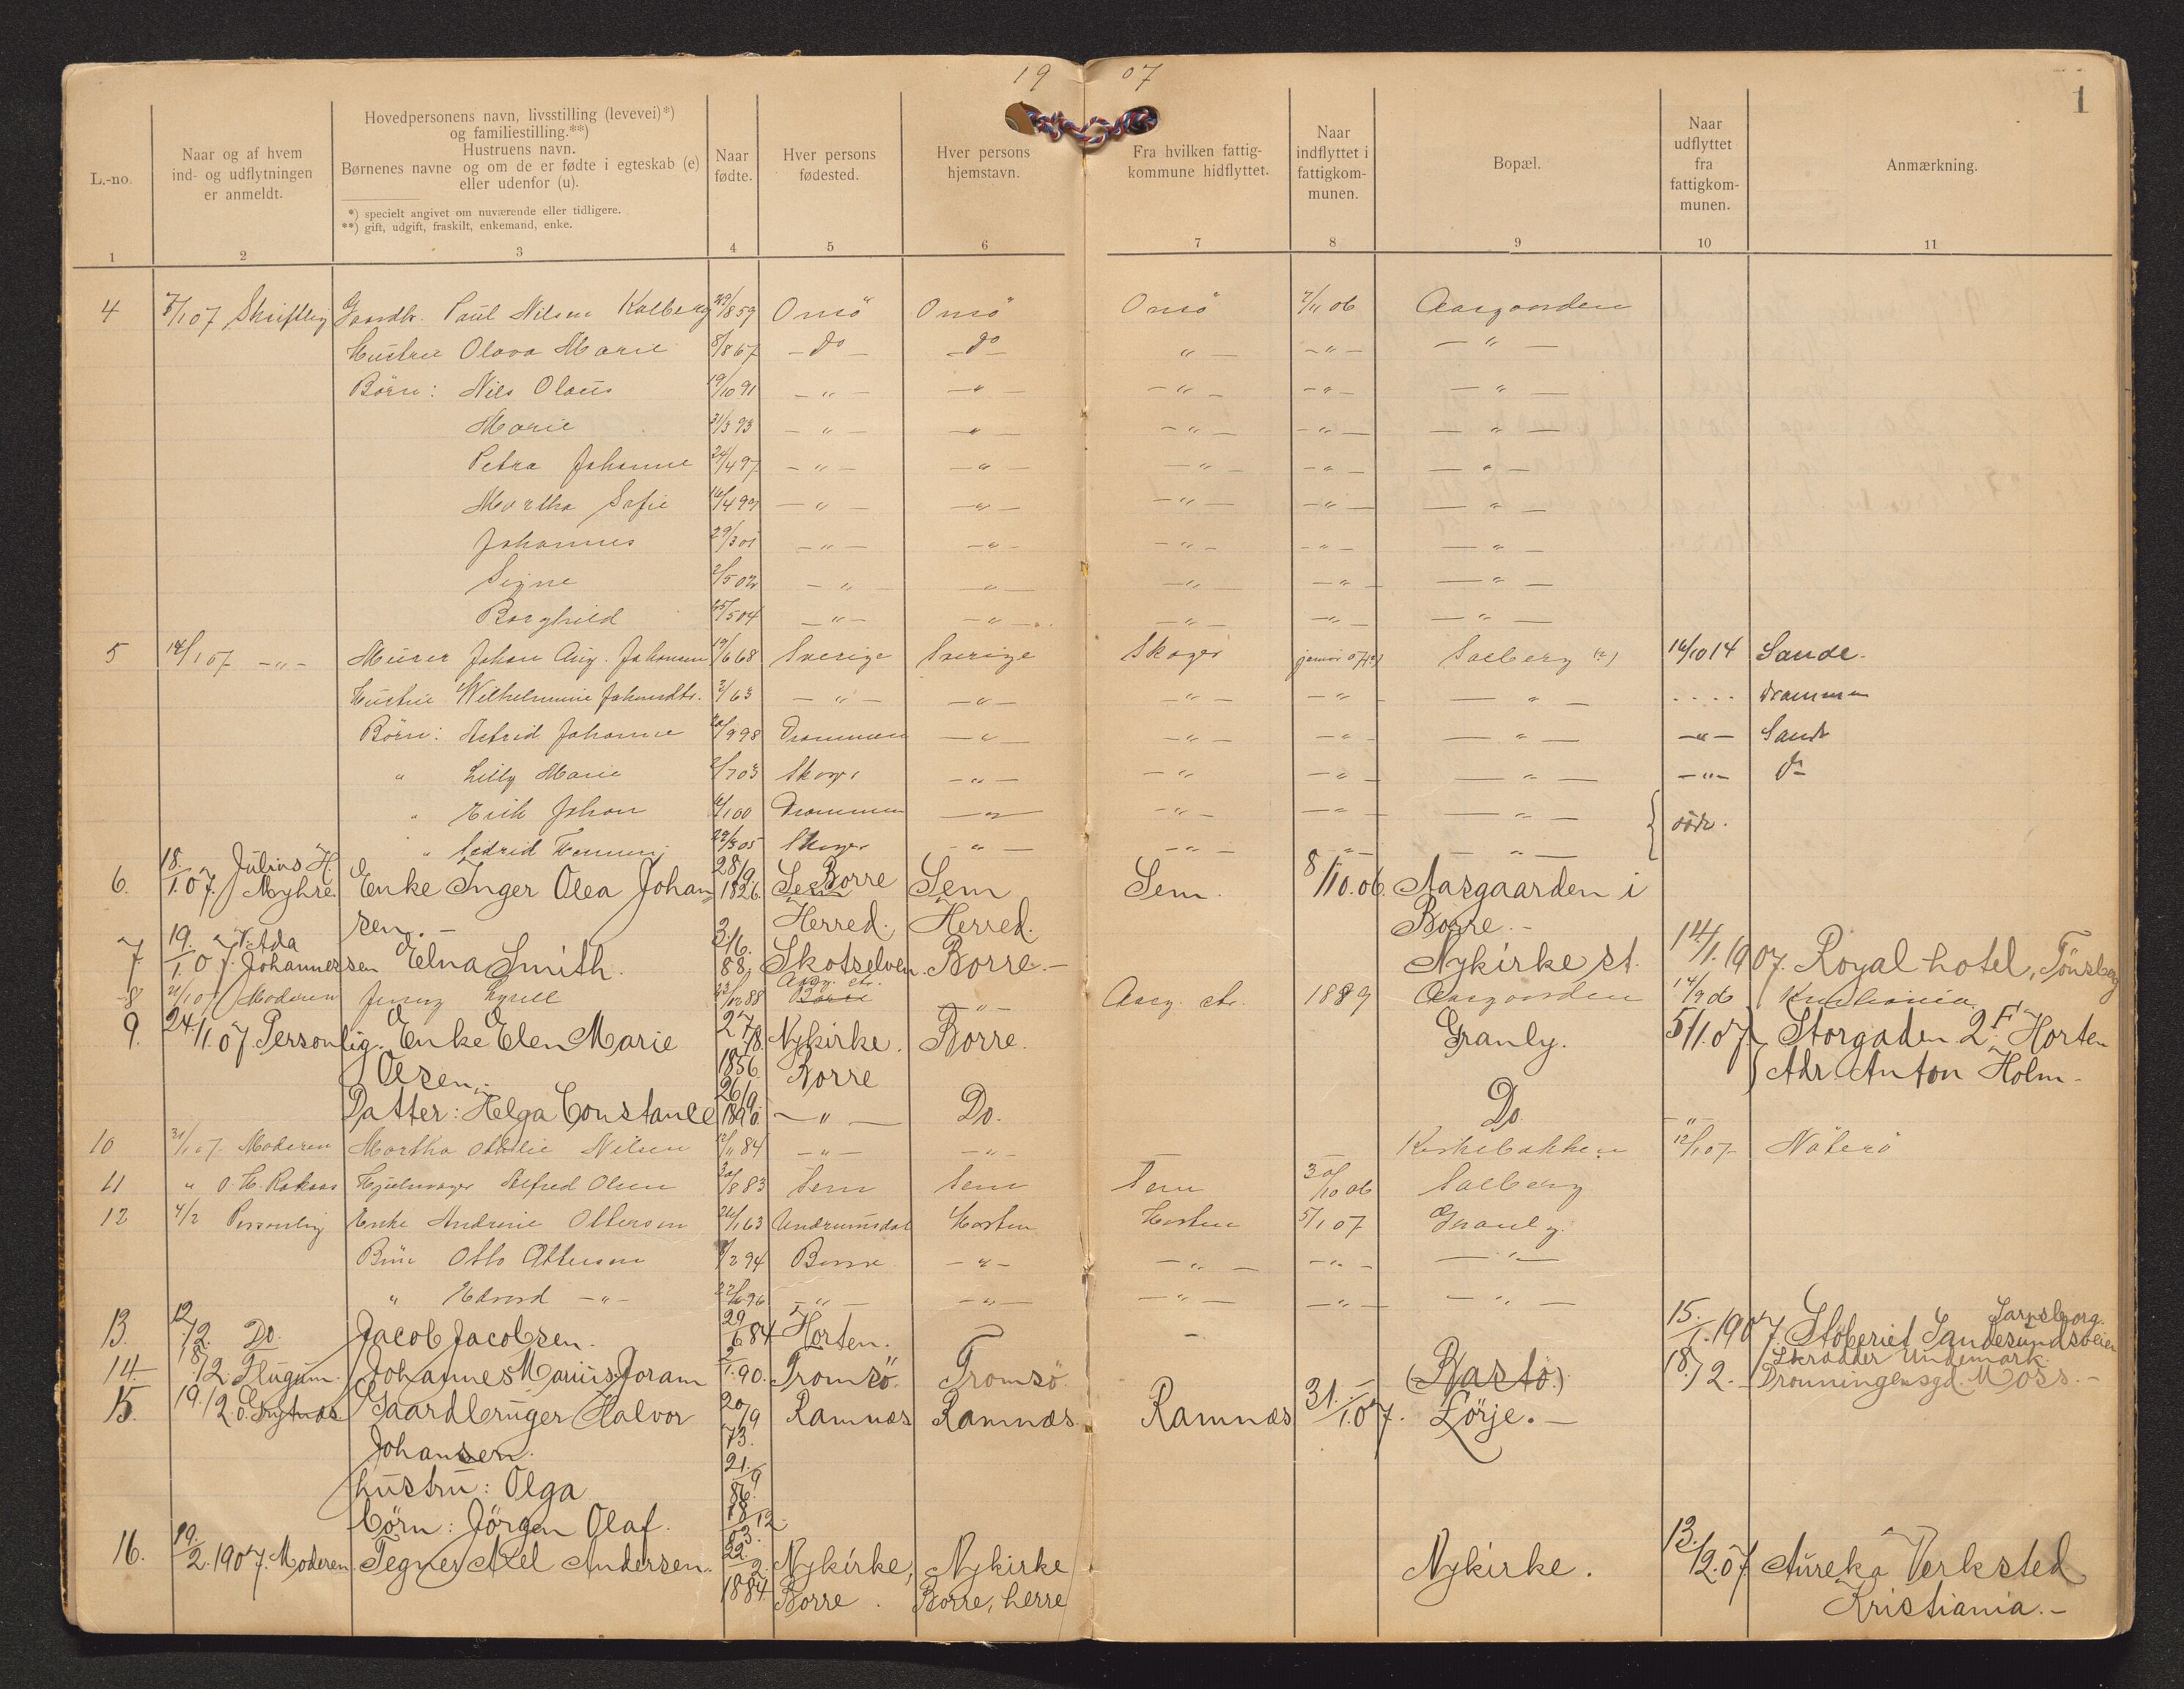 19 07
1
L.-no.
Naar og af hvem
ind- og udflytningen
er anmeldt.
Hovedpersonens navn, livsstilling (levevei)*)
og familiestilling.**)
Hustruens navn.
Børnenes navne og om de er fødte i egteskab (e)
eller udenfor (u).
*) specielt angivet om nuværende eller tidligere.
**) gift, udgift, fraskilt, enkemand, enke.
Naar
fødte.
Hver persons
fødested.
Hver persons
hjemstavn.
Fra hvilken fattig-
kommune hidflyttet.
Naar
indflyttet i
fattigkom-
munen.
Bopæl.
Naar
udflyttet
fra
fattigkom-
munen.
Anmærkning.
1 2 3 4 5 6 7 8 9 10 11
4 7/1 07 Skriftlig Gaardb. Paul Nilsen Kalberg 29/8 59 Onsö Onsö Onsö 7/11 06 Aasgaarden
Hustru Olava Marie 8/8 67 - do - - do - " - - " - - " -
Börn: Nils Olaus 19/10 91 - " - - " - - " - - " - - " -
Marie 31/3 93 - " - - " - - " - - " - - " -
Petra Johanne 24/4 97 - " - - " - - " - - " - - " -
Martha Sofie 16/4 99 - " - - " - - " - - " - - " -
Johannes 29/3 01 - " - - " - - " - - " - - " -
Signe 2/5 02 - " - - " - - " - - " - - " -
Borghild 25/5 04 - " - - " - - " - - " - - " -
5 14/1 07 - " - Murer Johan Aug. Johansen 19/6 68 Sverige Sverige Skoger januar 07 (?) Solberg (?) 16/10 14 Sande.
Hustru Wilhelmine Johansdtr. 2/ 63 - " - - " - - " - - " - - " - . . . . Drammen
Börn: Astrid Johanne 20/9 98 Drammen - " - - " - - " - - " - - " - Sande
" Lilly Marie 2/7 03 Skoger - " - - " - - " - - " - - " - do
" Erik Johan 6/1 00 Drammen - " - - " - - " - - " - döde.
" 29/3 05 Skoger - " - - " - - " - - " -
6. 18./1.07. Julius H.
Myhre Enke Inger Olea Johan= 28/9 1826. Sem Borre Sem Sem. 8/10.06. Aasgaarden i
sen. - Herred. Herred. Borre. -
7. 19./1.07. v. Ada
Johannessen Elna Smith. 3./6. 88. Skotselven. Borre. - Nykirke st. 14./1.1907. Royal hotel, Tönsberg
8 21/1 07 Moderen Jenny 23/12 88 Aasg. str. Borre - " - Aasg. str. 1889 Aasgaarden 14/9 06 Kristiania
9. 24./1.07. Personlig. Enke Elen Marie 27/8 1856. Nykirke. Borre. Granly. 5/1.07. Storgaden 2 F Horten
Olsen. - Borre Adr. Anton Holm -
Datter: Helga Constance 26/9 1890. - " - Do. Do. - " -
10 31/1 07. Moderen Martha Othilie Nilsen 12/11 84 - " - - " - - Kirkebakken 12/1 07 Nöterö
11 " O. H. Rakaas Hjulmager Alfred Olsen 30/8 83 Sem Sem Sem 30/10 06 Solberg
12 4/2 Personlig Enke Andrine Ottersen 26/1 63 Undrumsdal Horten Horten 5/1 07 Granly.
Börn Otto Ottersen 8/2 94 Borre - " - - " - - " - - " -
" Edvard - " - 22/6 96 - " - - " - - " - - " - - " -
13. 12./2. Do. Jacob Jacobsen. 29/6 84 Horten. - - 15./1.1907. Stöberiet Sandesundsveien Sarpsborg.
14. 18/2. Flugum. Johannes Marius Joram 2/1.90. Tromsö. Tromsö. (Bastö.) 18./2. Skrædder Undemark.
Dronningensgd. Moss. -
15. 19./2. O. Grytnæs Gaardbruger Halvor 20/9 73. Ramnæs Ramnæs. Ramnæs 31./1.07. Lörje. -
Johansen.
hustru: Olga 21./9 86.
börn: Jörgen Olaf. 18/12 03.
16. 19./2.1907. Moderen Tegner Axel Andersen. 22./2. 1884. Nykirke, Nykirke Nykirke. 13./2.07 Aureka Verksted
Borre. Borre, herre Kristiania. -